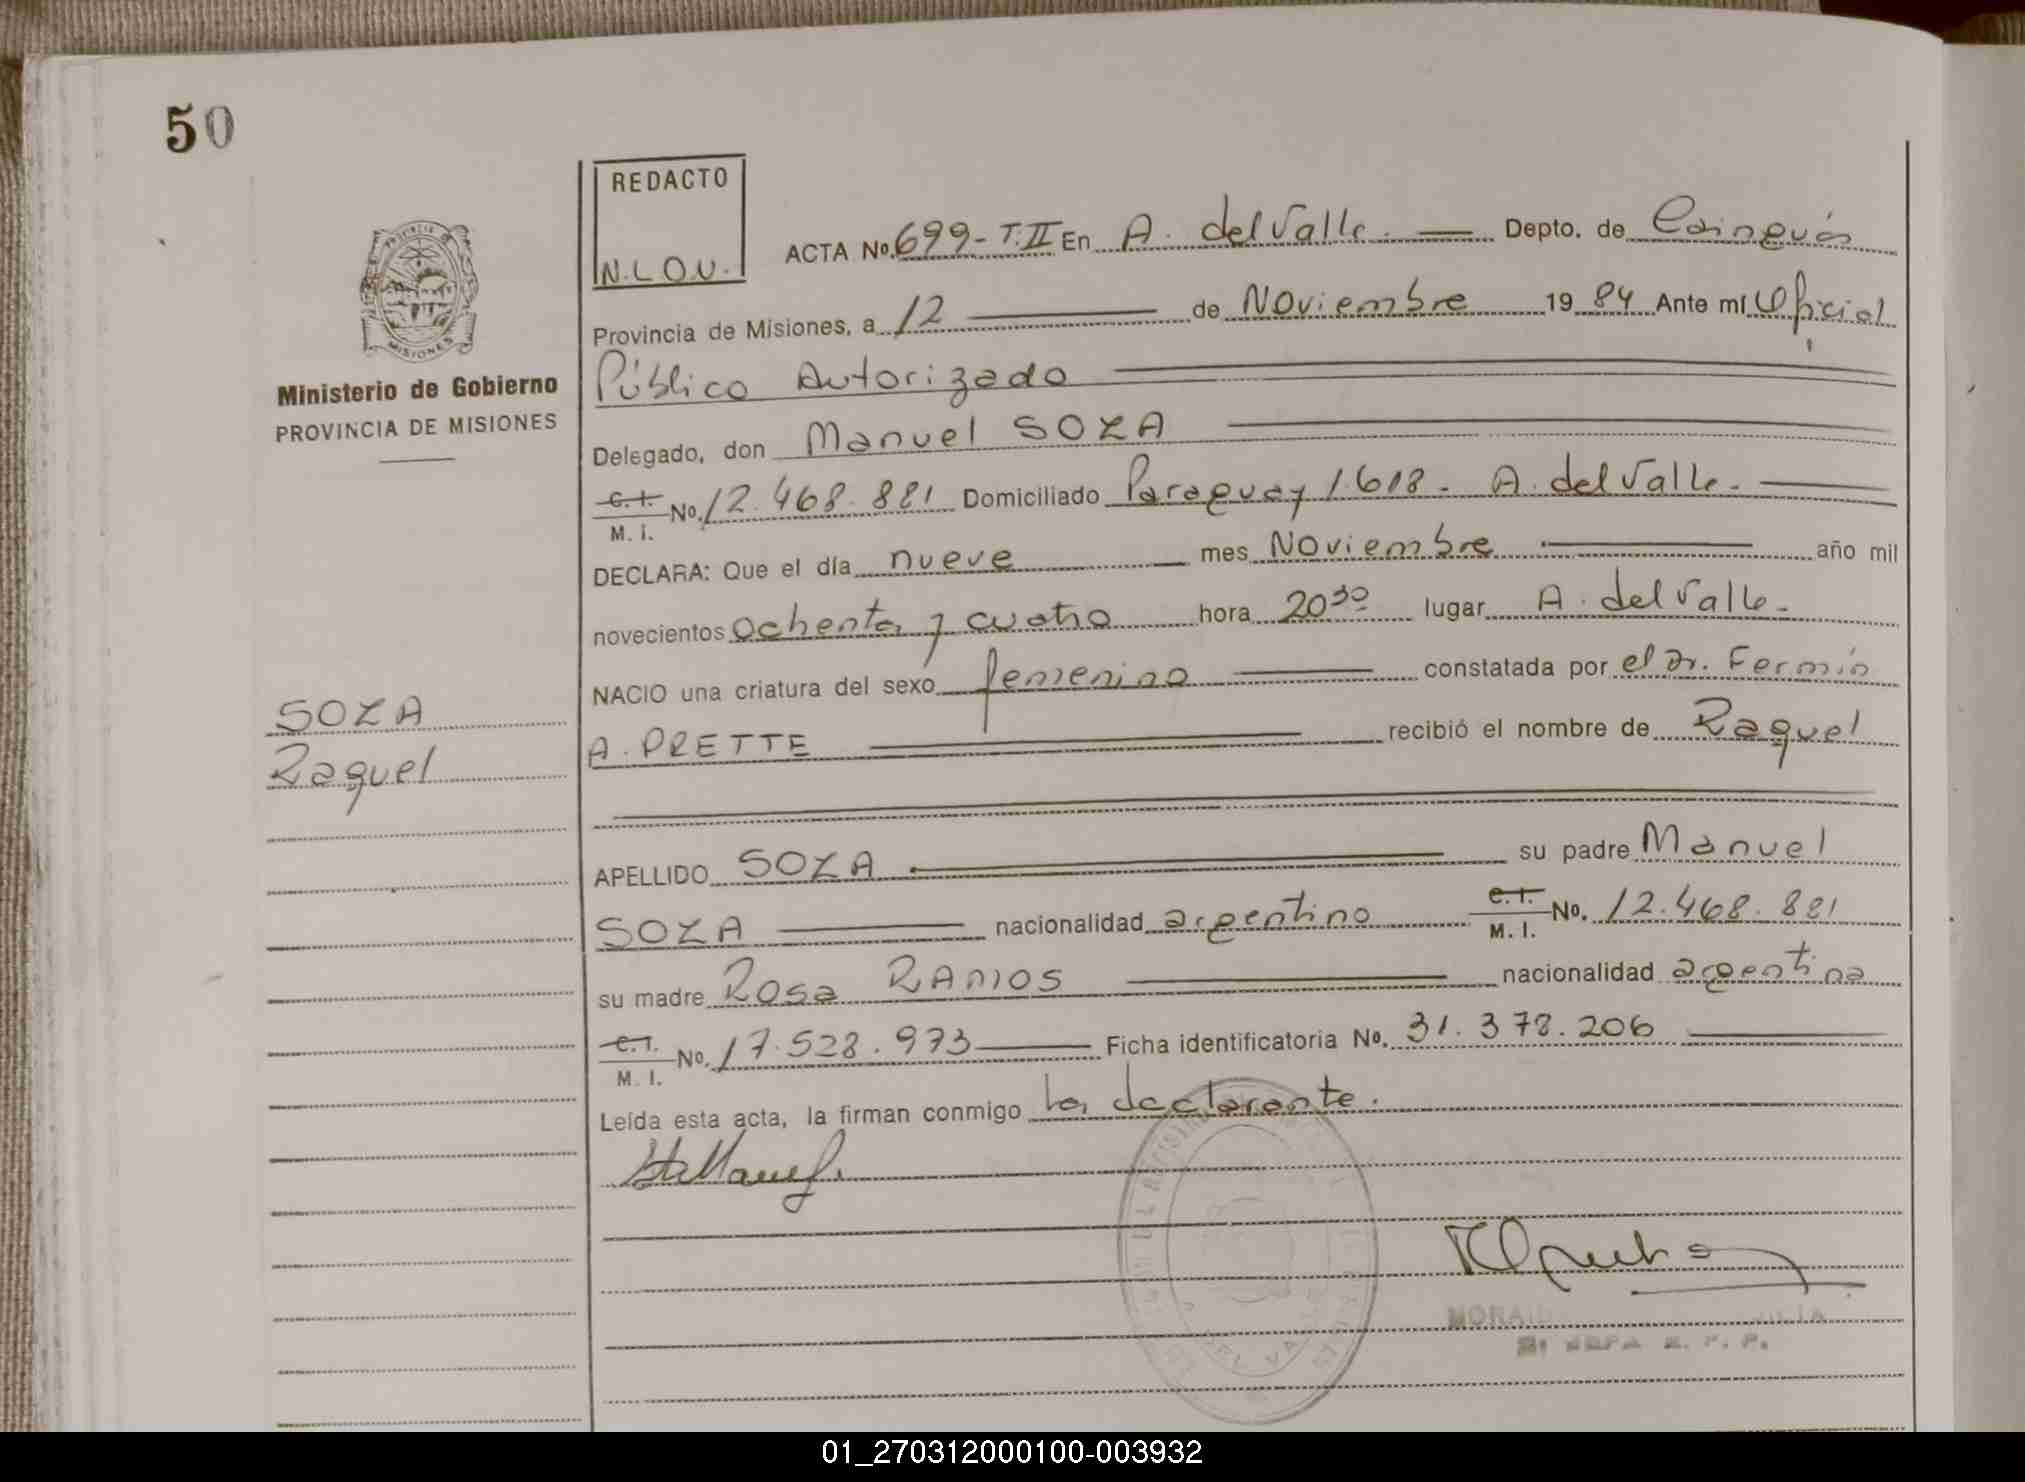 50
REDACTO
N.L.O.V.
ACTA No. 699-T.II En A. del Valle. Depto. de Cainguás
Provincia de Misiones, a 12 de Noviembre 1984 Ante mí Oficial
Público Autorizado
MISIONES
Ministerio de Gobierno
PROVINCIA DE MISIONES
Delegado, don Manuel SOZA
C.I. M.I. No. 12.468.881 Domiciliado Paraguay 1618. A. del Valle.
DECLARA: Que el día nueve mes Noviembre año mil
novecientos ochenta y cuatro hora 20 30 lugar A. del Valle.
NACIO una criatura del sexo femenino constatada por el Dr. Fermín
SOZA
A. PRETTE recibió el nombre de Raquel
Raquel
APELLIDO SOZA su padre Manuel
SOZA nacionalidad argentino C.I. M.I. No. 12.468.881
su madre Rosa RAMOS nacionalidad argentina
C.I. M.I. No. 17.528.973 Ficha identificatoria No. 31.378.206
Leída esta acta, la firman conmigo la declarante.